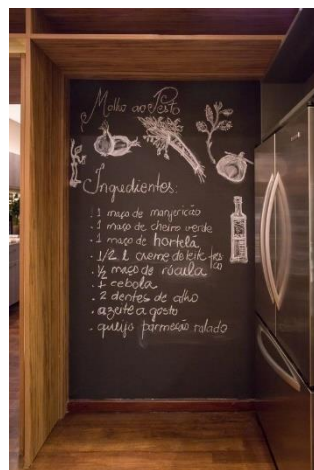 Molho ao Pesto
Ingredientes:
. 1 maço de manjericão
. 1 maço de cheiro verde
. 1 maço de hortelã
. 1/2 l creme de leite fresco
. ½ maço de rúcula
. 1 cebola
. 2 dentes de alho
. azeite a gosto
. queijo parmesão ralado